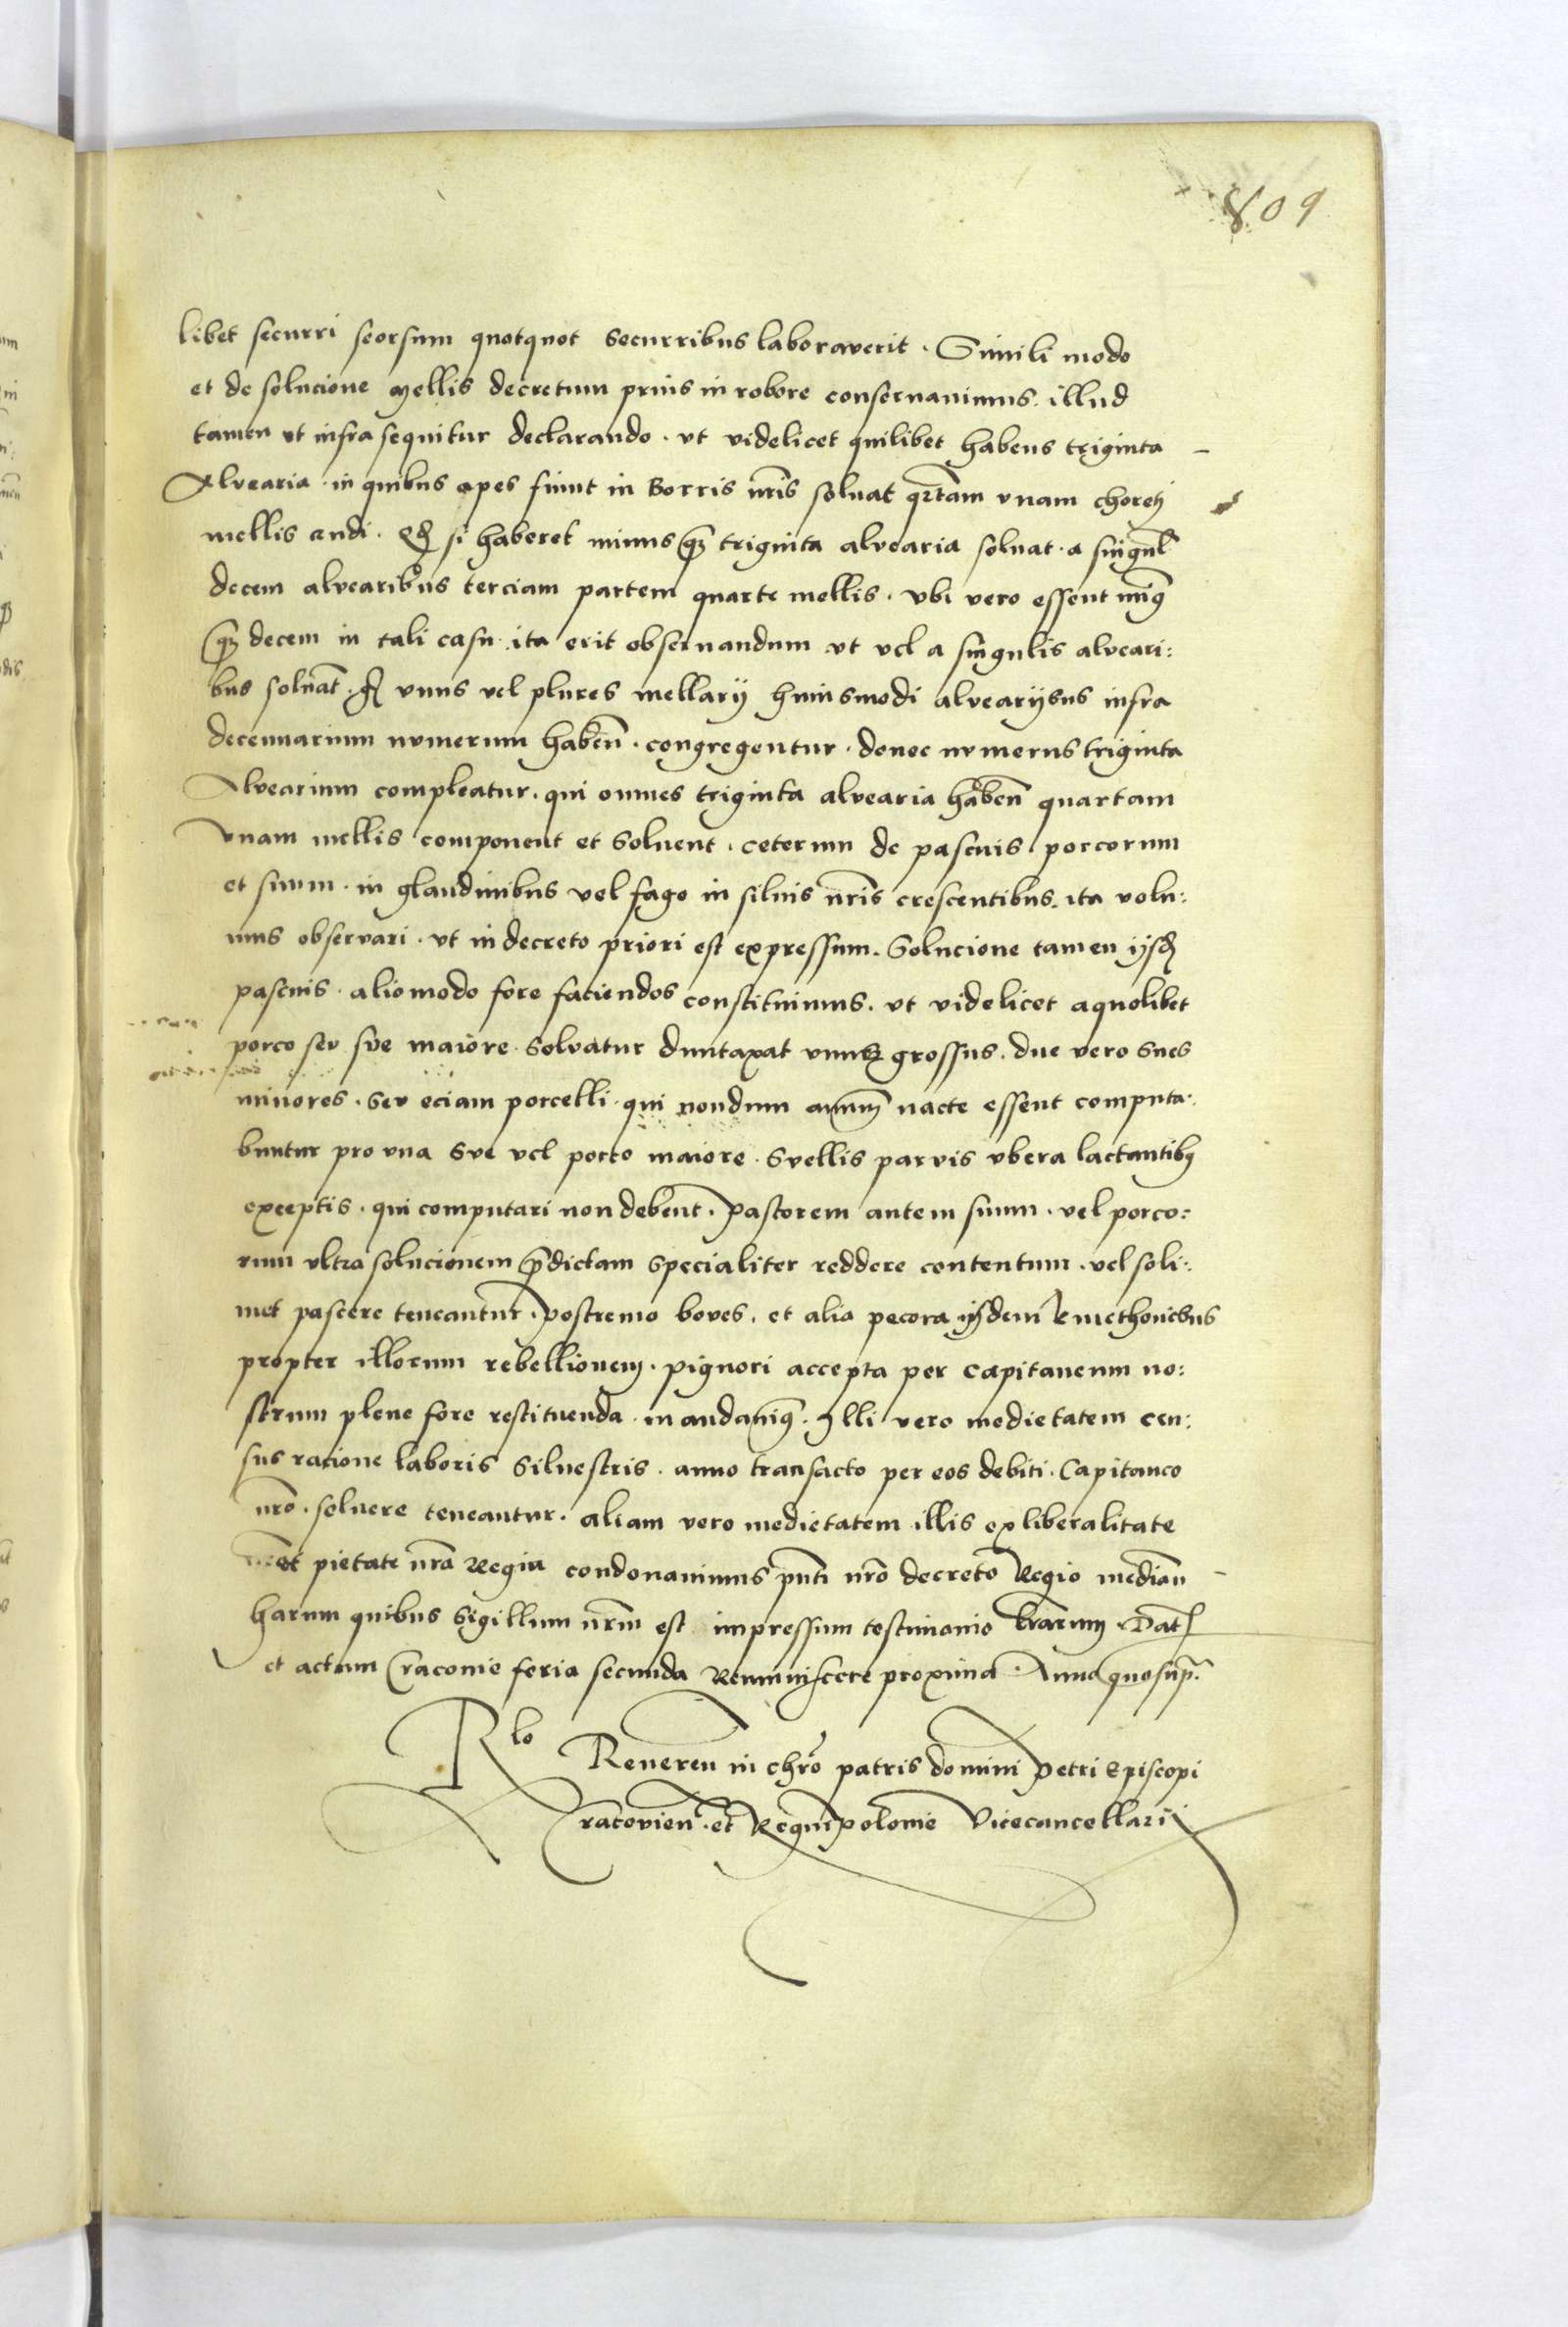 809
libet securri seorsum quotquot securribus laboraverit. Simili modo
et de solucione mellis decretum prius in robore conservavimus. illud
tamen ut infra sequitur declarando. ut videlicet quilibet habens triginta
Alvearia in quibus apes fiunt in Borris nr̄is solvat qr̄tam vnam
mellis crudi. Qđ si haberet minus qȝ triginta alvearia solvat a singul̄
decem alvearibus terciam partem quarte mellis. vbi vero essent min9
qȝ decem in tali casu ita erit observandum vt vel a singulis alveari:
bus solvat̄. vnus vel plures mellarij huiusmodi alvearijbus infra
decennarium numerum haben̄. congregentur. donec numerus triginta
Alvearium compleatur. qui omnes triginta alvearia haben̄ quartam
vnam mellis component et solvent. ceterum de pascuis porcorum
et suum. in glandinibus vel fago in siluis nr̄is crescentibus. ita volu:
mus observari. vt in decreto priori est expressum. Solucione tamen
pascuis alio modo fore faciendos constituimus. vt videlicet a quolibet
porco seu sue maiore solvatur duntaxat vnus grossus. due vero sues
minores. seu eciam porcelli qui nondum annum nacte essent computa:
buntur pro vna sue vel porco maiore. Suellis parvis vbera lactantib9
exceptis. qui computari non debent. Pastorem autem suum. vel porco:
rum vltra solucionem p̄dictam specialiter reddere contentum. vel soli:
met pascere teneantur. Postremo boves. et alia pecora ijsdem kmethonibus
propter illorum rebellionem. pignori accepta per Capitaneum no:
strum plene fore restituenda mandavim9. Illi vero medietatem cen:
sus racione laboris silvestris. anno transacto per eos debiti. Capitaneo
nr̄o. solvere teneantur. aliam vero medietatem illis ex liberalitate
et pietate nr̄a Regia condonavimus pn̄ti nr̄o decreto Regio median̄
harum quibus Sigillum nr̄m est impressum testimonio lr̄arum. Dat̄
et actum Cracouie feria secunda Reminiscere proxima. Anno quo sup̄.
Rlo Reveren̄ in chr̄o patris domini Petri Episcopi
Cracovien̄. et Regni Polonie Vicecancellarij